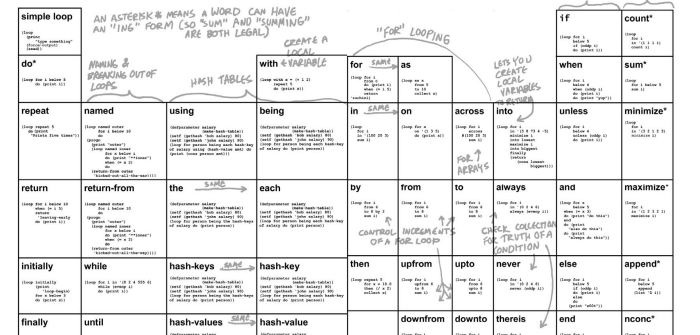 simple loop
(loop
(princ
"type something")
(force-output)
(read))
AN ASTERISK * MEANS A WORD CAN HAVE
AN "ING" FORM (SO "SUM" AND "SUMMING"
ARE BOTH LEGAL)
if
(loop for i
below 5
if (oddp i)
do (print i))
count*
(loop for i
in '(1 1 1 1)
count i)
do*
(loop for i below 5
do (print i))
NAMING &
BREAKING OUT OF
LOOPS
HASH TABLES
CREATE A
LOCAL
VARIABLE
with
(loop with x = (+ 1 2)
repeat 5
do (print x))
"FOR" LOOPING
for
SAME
as
(loop for i
from 0
do (print i)
when (= i 5)
return
(loop as x
from 5
to 10
collect x)
LETS YOU
CREATE
LOCAL
VARIABLES
TO RETURN
when
(loop for i
below 4
when (oddp i)
do (print i)
do (print "yup"))
sum*
(loop for i
below 5
sum i)
repeat
(loop repeat 5
do (print
"Prints five times"))
named
(loop named outer
for i below 10
do
(progn
(print "outer")
(loop named inner
for x below i
do (print "**inner")
when (= x 2)
do
(return-from outer
'kicked-out-all-the-way))))
using
(defparameter salary
(make-hash-table))
(setf (gethash 'bob salary) 80)
(setf (gethash 'john salary) 90)
(loop for person being each hash-key
of salary using (hash-value amt) do
(print (cons person amt)))
being
(defparameter salary
(make-hash-table))
(setf (gethash 'bob salary) 80)
(setf (gethash 'john salary) 90)
(loop for person being each hash-key
of salary do (print person))
in
SAME
on
(loop for i
in '(100 20 3)
sum i)
(loop for x
on '(1 3 5)
do (print x))
across
(loop for i
across
#(100 20 3)
sum i)
FOR
ARRAYS
into
(loop for i
in '(5 8 73 4 -5)
minimize i
into lowest
maximize i
into biggest
finally
(return
(cons lowest
biggest)))
unless
(loop for i
below 4
unless (oddp i)
do (print i))
minimize*
(loop for i
in '(3 2 1 2 3)
minimize i)
return
(loop for i
below 10
when (= i 5)
return
'leave-early
do (print i))
return-from
(loop named outer
for i below 10
do
(progn
(print "outer")
(loop named inner
for x below i
do (print "**inner")
when (= x 2)
do
(return-from outer
'kicked-out-all-the-way))))
the
SAME
each
(defparameter salary
(make-hash-table))
(setf (gethash 'bob salary) 80)
(setf (gethash 'john salary) 90)
(loop for person being the hash-keys
of salary do (print person))
(defparameter salary
(make-hash-table))
(setf (gethash 'bob salary) 80)
(setf (gethash 'john salary) 90)
(loop for person being each hash-key
of salary do (print person))
by
(loop for i
from 6
to 8 by 2
sum i)
from
(loop for i
from 6
to 8
sum i)
to
(loop for i
from 6
to 8
sum i)
CONTROL INCREMENTS
OF A FOR LOOP
always
(loop for i
in '(0 2 4 6)
always (evenp i))
CHECK COLLECTION
FOR TRUTH OF A
CONDITION
and
(loop for x
below 5
when (= x 3)
do (print "do this")
and
do (print
"also do this")
do (print
"always do this"))
maximize*
(loop for i
in '(1 2 3 2 1)
maximize i)
initially
(loop initially
(print
'loop-begin)
for x below 3
do (print x))
while
(loop for i in '(0 2 4 555 6)
while (evenp i)
do (print i))
hash-keys
SAME
hash-key
(defparameter salary
(make-hash-table))
(setf (gethash 'bob salary) 80)
(setf (gethash 'john salary) 90)
(loop for person being the hash-keys
of salary do (print person))
(defparameter salary
(make-hash-table))
(setf (gethash 'bob salary) 80)
(setf (gethash 'john salary) 90)
(loop for person being each hash-key
of salary do (print person))
then
(loop repeat 5
for x = 10.0
then (/ x 2)
collect x)
upfrom
(loop for i
upfrom 6
to 8
sum i)
upto
(loop for i
from 6
upto 8
sum i)
never
(loop for i
in '(0 2 4 6)
never (oddp i))
else
(loop for i
below 5
if (oddp i)
do (print i)
else
do
(print "w00t"))
append*
(loop for i
below 5
append
(list 'Z i))
finally
until
hash-values
SAME
hash-value
(defparameter salary
(defparameter salary
downfrom
(loop for i
downto
(loop for i
thereis
(loop for i
end
(loop for i
nconc*
(loop for i